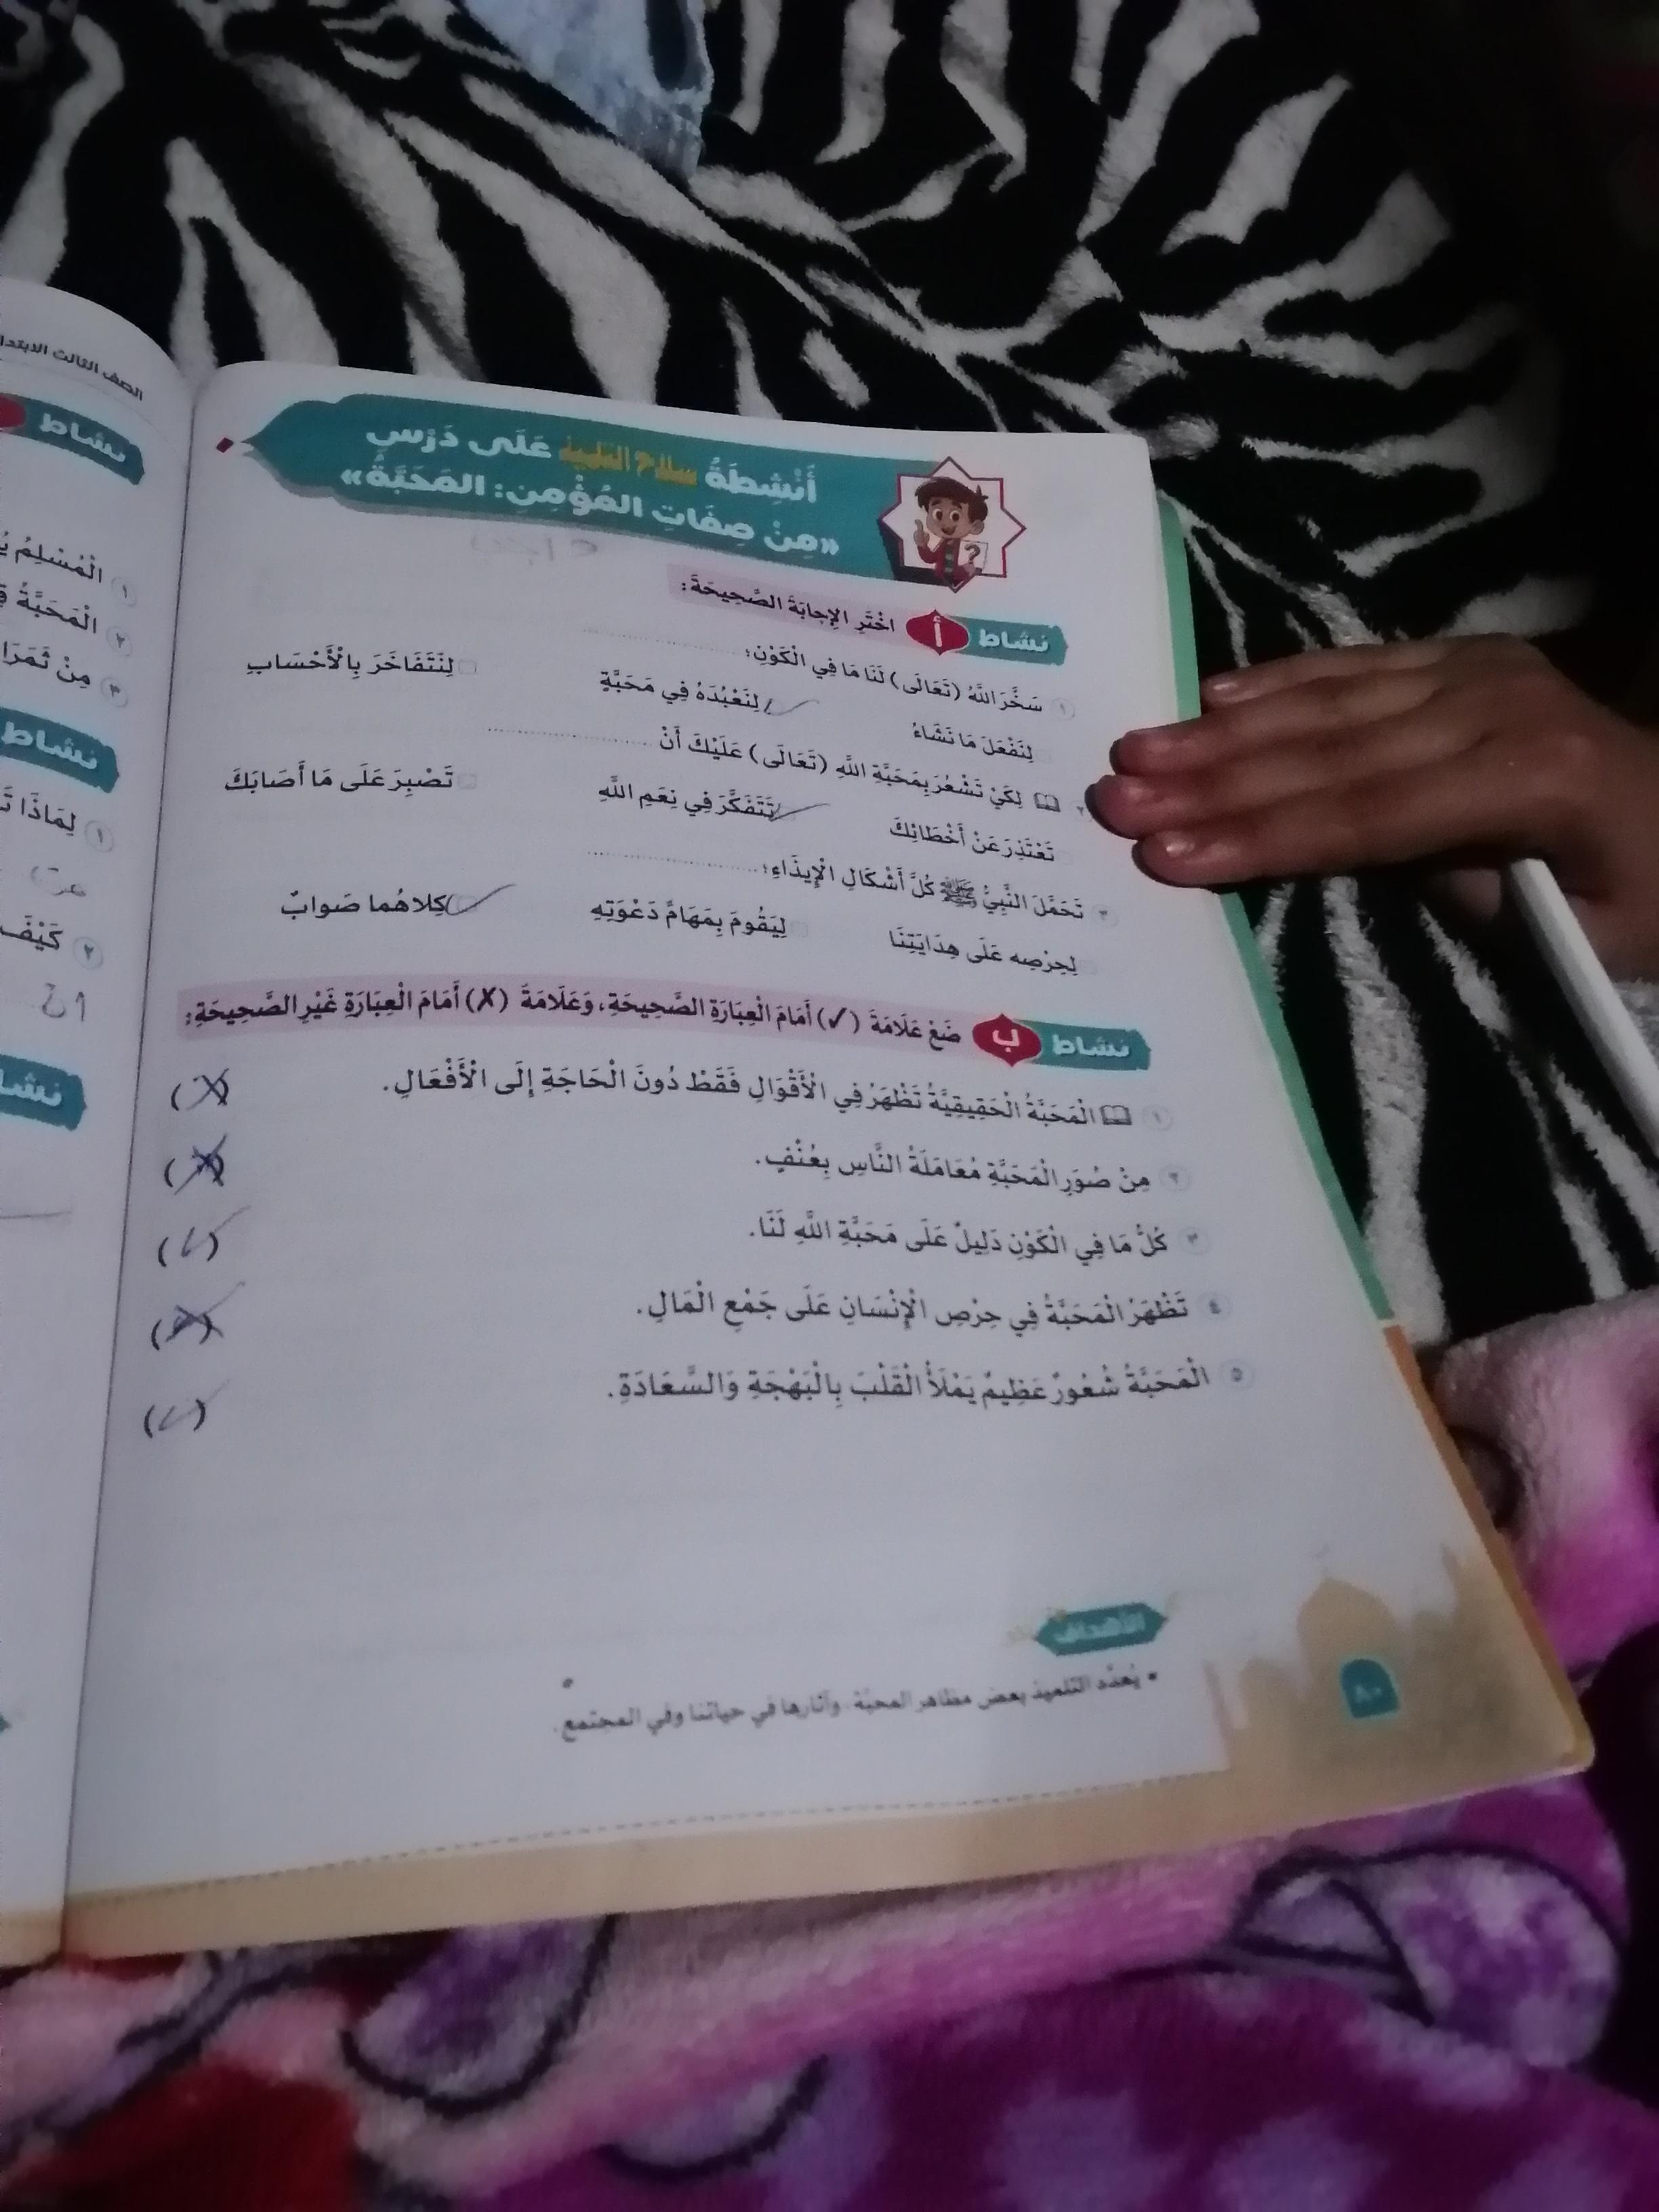 أَنْشِطَةُ سلاح التلميذ عَلَى دَرْسِ
«مِنْ صِفَاتِ المُؤْمِنِ: المَحَبَّةُ»
نشاط أ اخْتَرِ الإِجابَةَ الصَّحِيحَةَ:
١ سَخَّرَ اللَّهُ (تَعَالَى) لَنَا مَا فِي الْكَوْنِ؛ ..............
لِنَفْعَلَ مَا نَشَاءُ لِنَعْبُدَهُ فِي مَحَبَّةٍ لِنَتَفَاخَرَ بِالْأَحْسَابِ
٢ لِكَيْ تَشْعُرَ بِمَحَبَّةِ اللَّهِ (تَعَالَى) عَلَيْكَ أَنْ ..............
تَعْتَذِرَ عَنْ أَخْطَائِكَ تَتَفَكَّرَ فِي نِعَمِ اللَّهِ تَصْبِرَ عَلَى مَا أَصَابَكَ
٣ تَحَمَّلَ النَّبِيُّ ﷺ كُلَّ أَشْكَالِ الْإِيذَاءِ؛ ..............
لِحِرْصِه عَلَى هِدَايَتِنَا لِيَقُومَ بِمَهَامِّ دَعْوَتِهِ كِلاهُما صَوابٌ
نشاط ب ضَعْ عَلَامَةَ (✓) أَمَامَ الْعِبَارَةِ الصَّحِيحَةِ، وَعَلَامَةَ (✗) أَمَامَ الْعِبَارَةِ غَيْرِ الصَّحِيحَةِ:
١ الْمَحَبَّةُ الْحَقِيقِيَّةُ تَظْهَرُ فِي الْأَقْوَالِ فَقَطْ دُونَ الْحَاجَةِ إِلَى الْأَفْعَالِ. (✗)
٢ مِنْ صُوَرِ الْمَحَبَّةِ مُعَامَلَةُ النَّاسِ بِعُنْفٍ. (✗)
٣ كُلُّ مَا فِي الْكَوْنِ دَلِيلٌ عَلَى مَحَبَّةِ اللَّهِ لَنَا. (✓)
٤ تَظْهَرُ الْمَحَبَّةُ فِي حِرْصِ الْإِنْسَانِ عَلَى جَمْعِ الْمَالِ. (✗)
٥ الْمَحَبَّةُ شُعُورٌ عَظِيمٌ يَمْلَأُ الْقَلْبَ بِالْبَهْجَةِ وَالسَّعَادَةِ. (✓)
الأهداف
• يُعدِّد التلميذ بعض مظاهر المحبَّة، وآثارها في حياتنا وفي المجتمع.
٨٠
الصف الثالث
نشاط
١ الْمُسْلِمُ
٢ الْمَحَبَّةُ
٣ مِنْ
نشاط
١ لِمَاذَا
٢ كَيْفَ